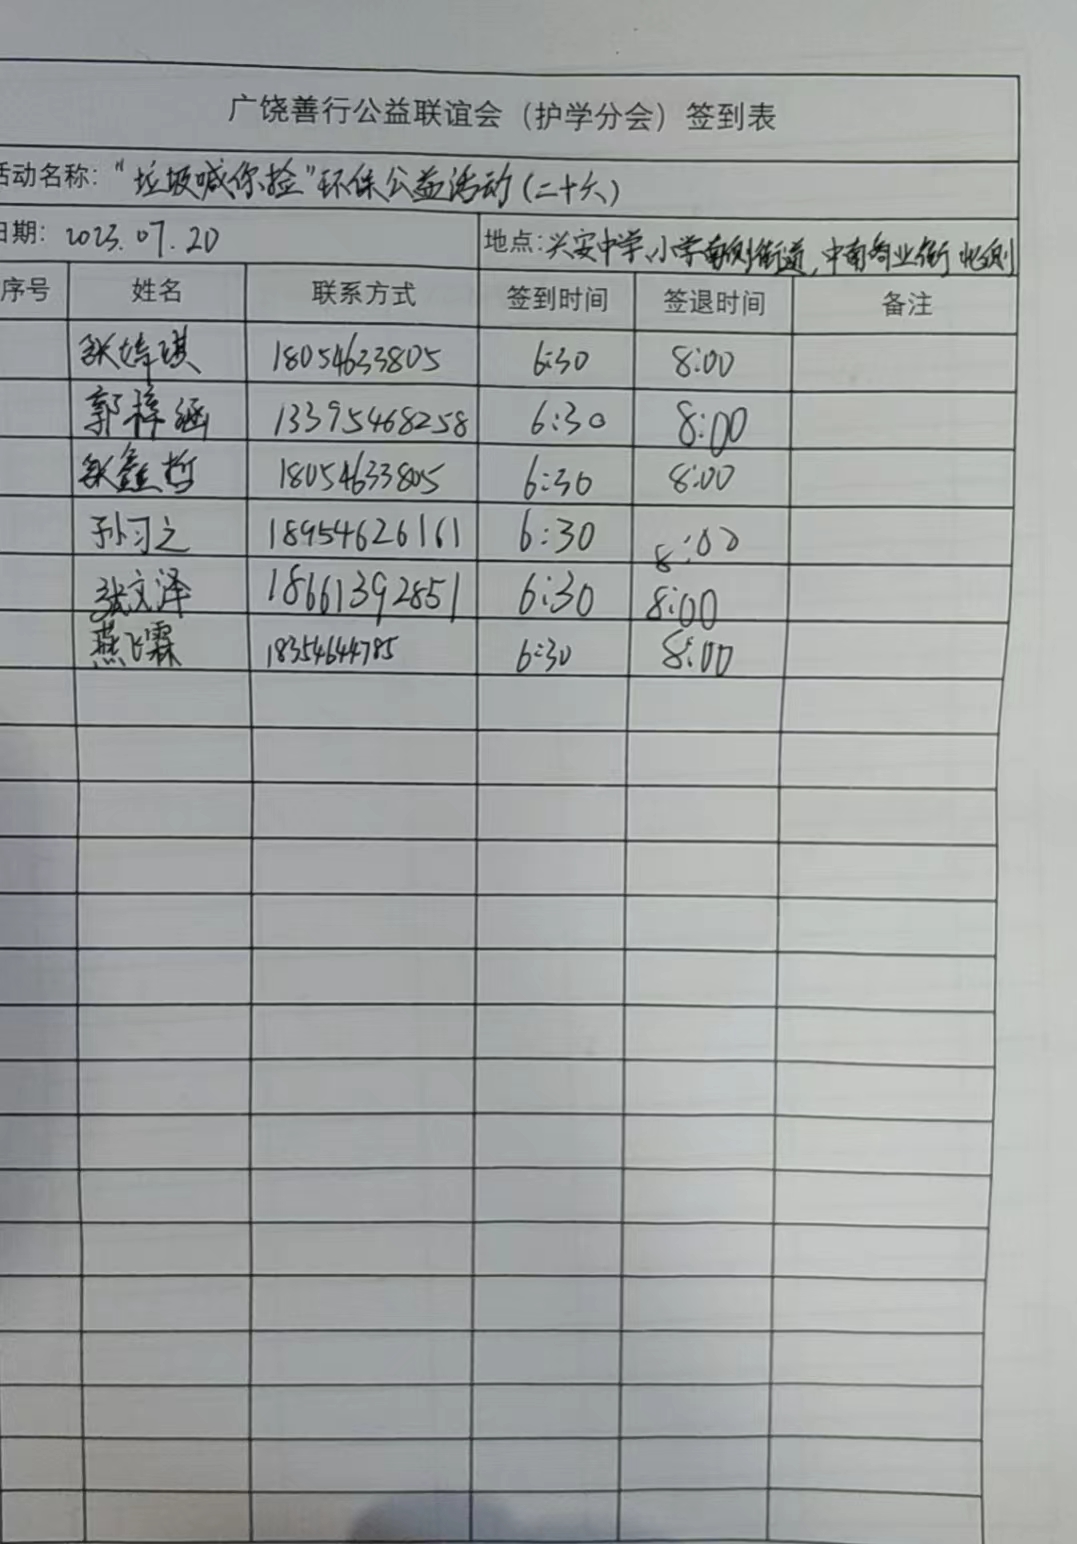 广饶善行公益联谊会（护学分会）签到表
活动名称：“垃圾喊你捡”环保公益活动（二十六）
日期：2023.07.20 地点：兴安中学、小学南侧街道，中南商业街北侧
序号 姓名 联系方式 签到时间 签退时间 备注
张婞琪 18054633805 6:30 8:00
郭梓涵 13395468258 6:30 8:00
张鑫哲 18054633805 6:30 8:00
孙习之 18954626161 6:30 8:00
张文泽 18661392851 6:30 8:00
燕飞霖 18354644785 6:30 8:00